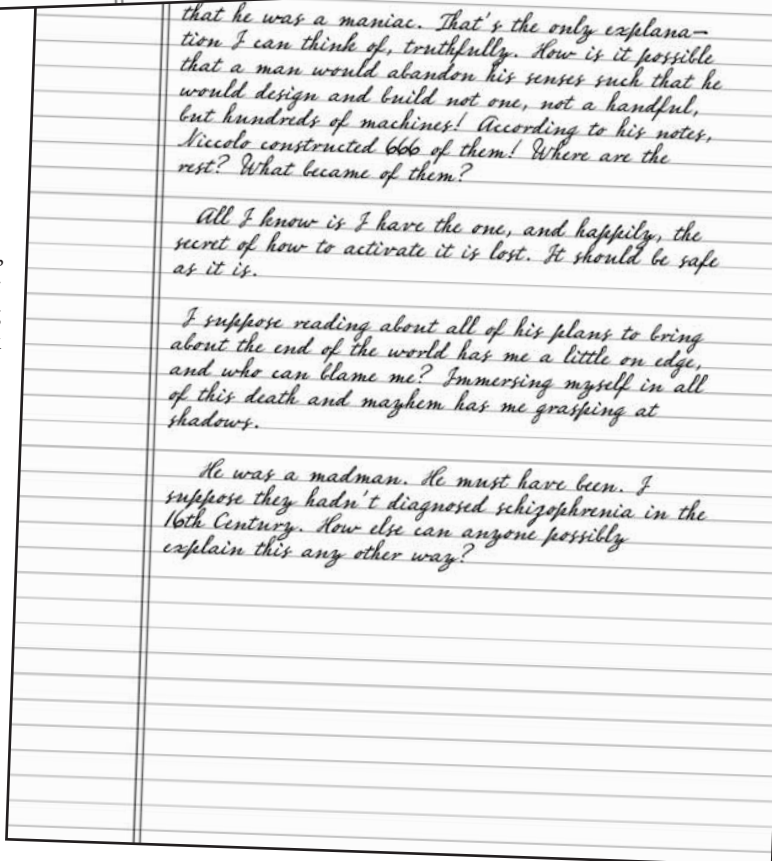 that he was a maniac. That's the only explana-
tion I can think of, truthfully. How is it possible
that a man would abandon his senses such that he
would design and build not one, not a handful,
but hundreds of machines! According to his notes,
Niccolo constructed 666 of them! Where are the
rest? What became of them?
All I know is I have the one, and happily, the
secret of how to activate it is lost. It should be safe
as it is.
I suppose reading about all of his plans to bring
about the end of the world has me a little on edge,
and who can blame me? Immersing myself in all
of this death and mayhem has me grasping at
shadows.
He was a madman. He must have been. I
suppose they hadn't diagnosed schizophrenia in the
16th Century. How else can anyone possibly
explain this any other way?